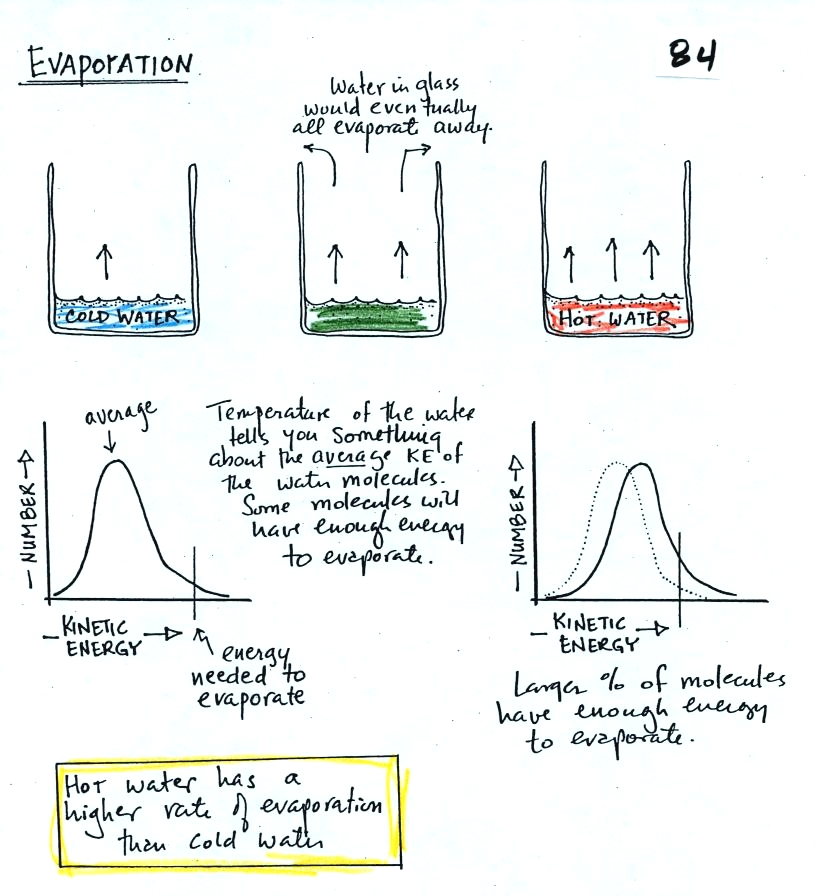 EVAPORATION
84
Water in glass
would eventually
all evaporate away.
COLD WATER
HOT WATER
average
NUMBER
KINETIC
ENERGY
energy
needed to
evaporate
Temperature of the water
tells you something
about the average KE of
the water molecules.
Some molecules will
have enough energy
to evaporate.
NUMBER
KINETIC
ENERGY
Larger % of molecules
have enough energy
to evaporate.
Hot water has a
higher rate of evaporation
than cold water